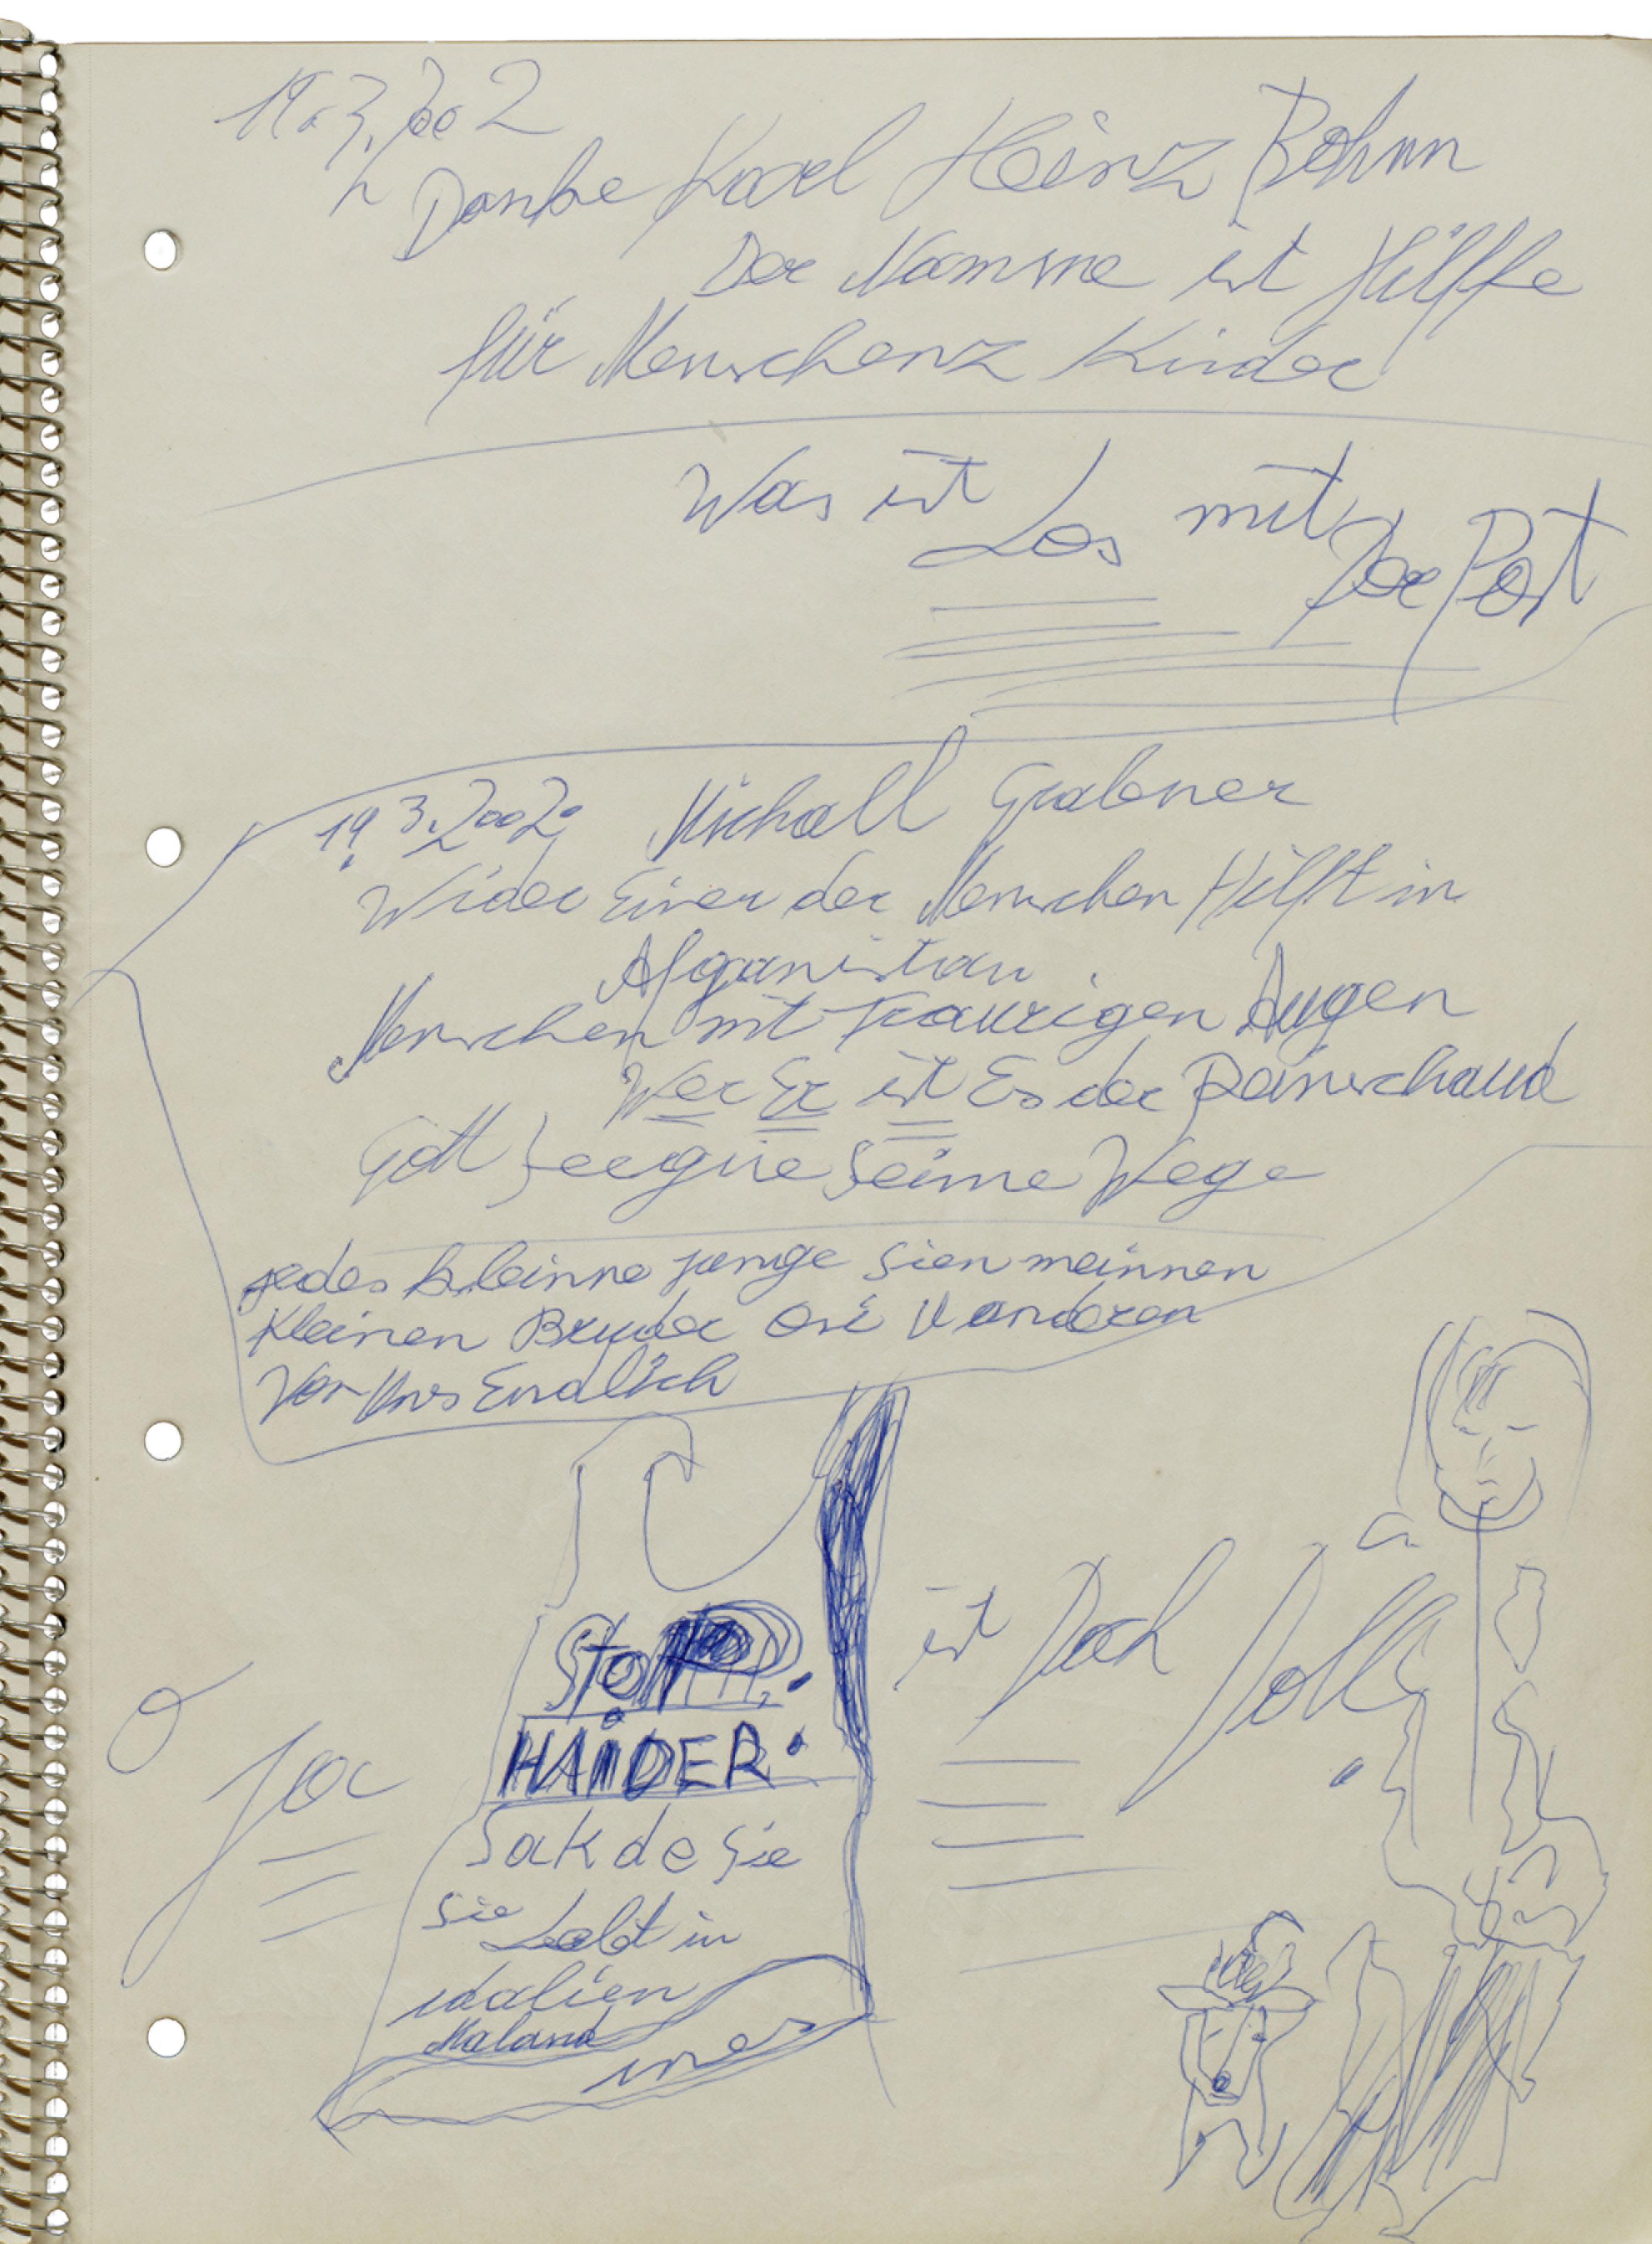 19.3.2002
Danke Karl Heinz Böhm
Der Namme ist Hilffe
für Menschenz Kinder
Was ist Los mit Der Post
19.3.2002. Michaell Grabner
Wider Einer der Menschen Hilft in
Afganistan
Menschen mit Traurigen Augen
Wer Er ist Es der
Gott Seegne Seine Wege
jedes kleinne junge Sien meinnen
Kleinen Bruder
Vor Uns Endlich
STOPP.
HAIDER.
Sakde Sie
ist Doch Toll.
Ja
Sie Lebt in
idalien
Maland